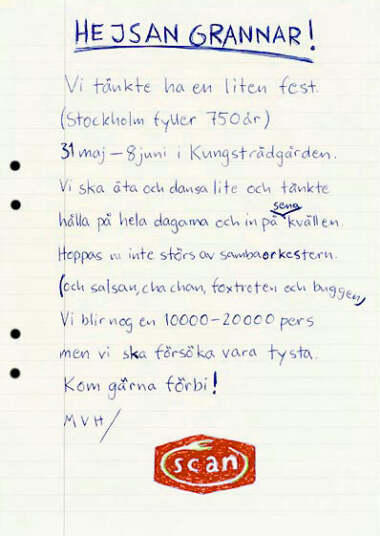 HEJSAN GRANNAR!
Vi tänkte ha en liten fest.
(Stockholm fyller 750 år)
31 maj – 8 juni i Kungsträdgården.
Vi ska äta och dansa lite och tänkte
hålla på hela dagarna och in på sena kvällen.
Hoppas ni inte störs av sambaorkestern.
(och salsan, cha chan, foxtroten och buggen)
Vi blir nog en 10000–20000 pers
men vi ska försöka vara tysta.
Kom gärna förbi!
MVH/
scan